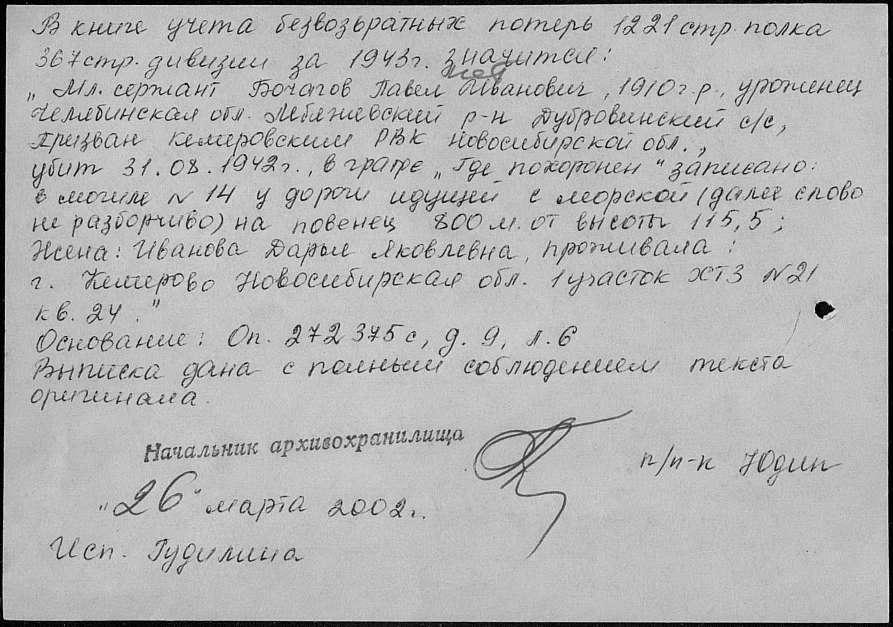 В книге учета безвозвратных потерь 1221 стр. полка
367 стр. дивизии за 1943г. значится:
„Мл. сержант Бочагов Павел Иванович, 1910 г.р., уроженец
Челябинская обл. Лебяжевский р-н Дубровинский с/с,
призван Кемеровским РВК Новосибирской обл.,
убит 31.08.1942г., в графе „Где похоронен" записано:
в могиле N 14 у дороги идущей с морской (далее слово
не разборчиво) на повенец 800 м. от высоты 115,5;
Жена: Иванова Дарья Яковлевна, проживала:
г. Кемерово Новосибирская обл. 1 участок ХТЗ N 21
кв. 24."
Основание: Оп. 272375с, д. 9, л. 6
Выписка дана с полным соблюдением текста
оригинала.
Начальник архивохранилища
п/п-к Юдин
„26" марта 2002г.
Исп. Гудилина